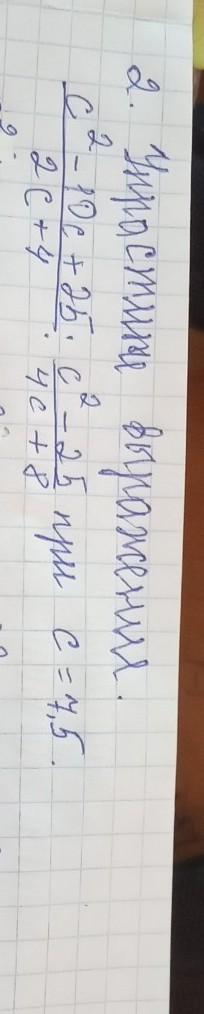 2. Упростите выражение.
c² - 10c + 25 / 2c + 4 : c² - 25 / 4c + 8 при c = 7,5.